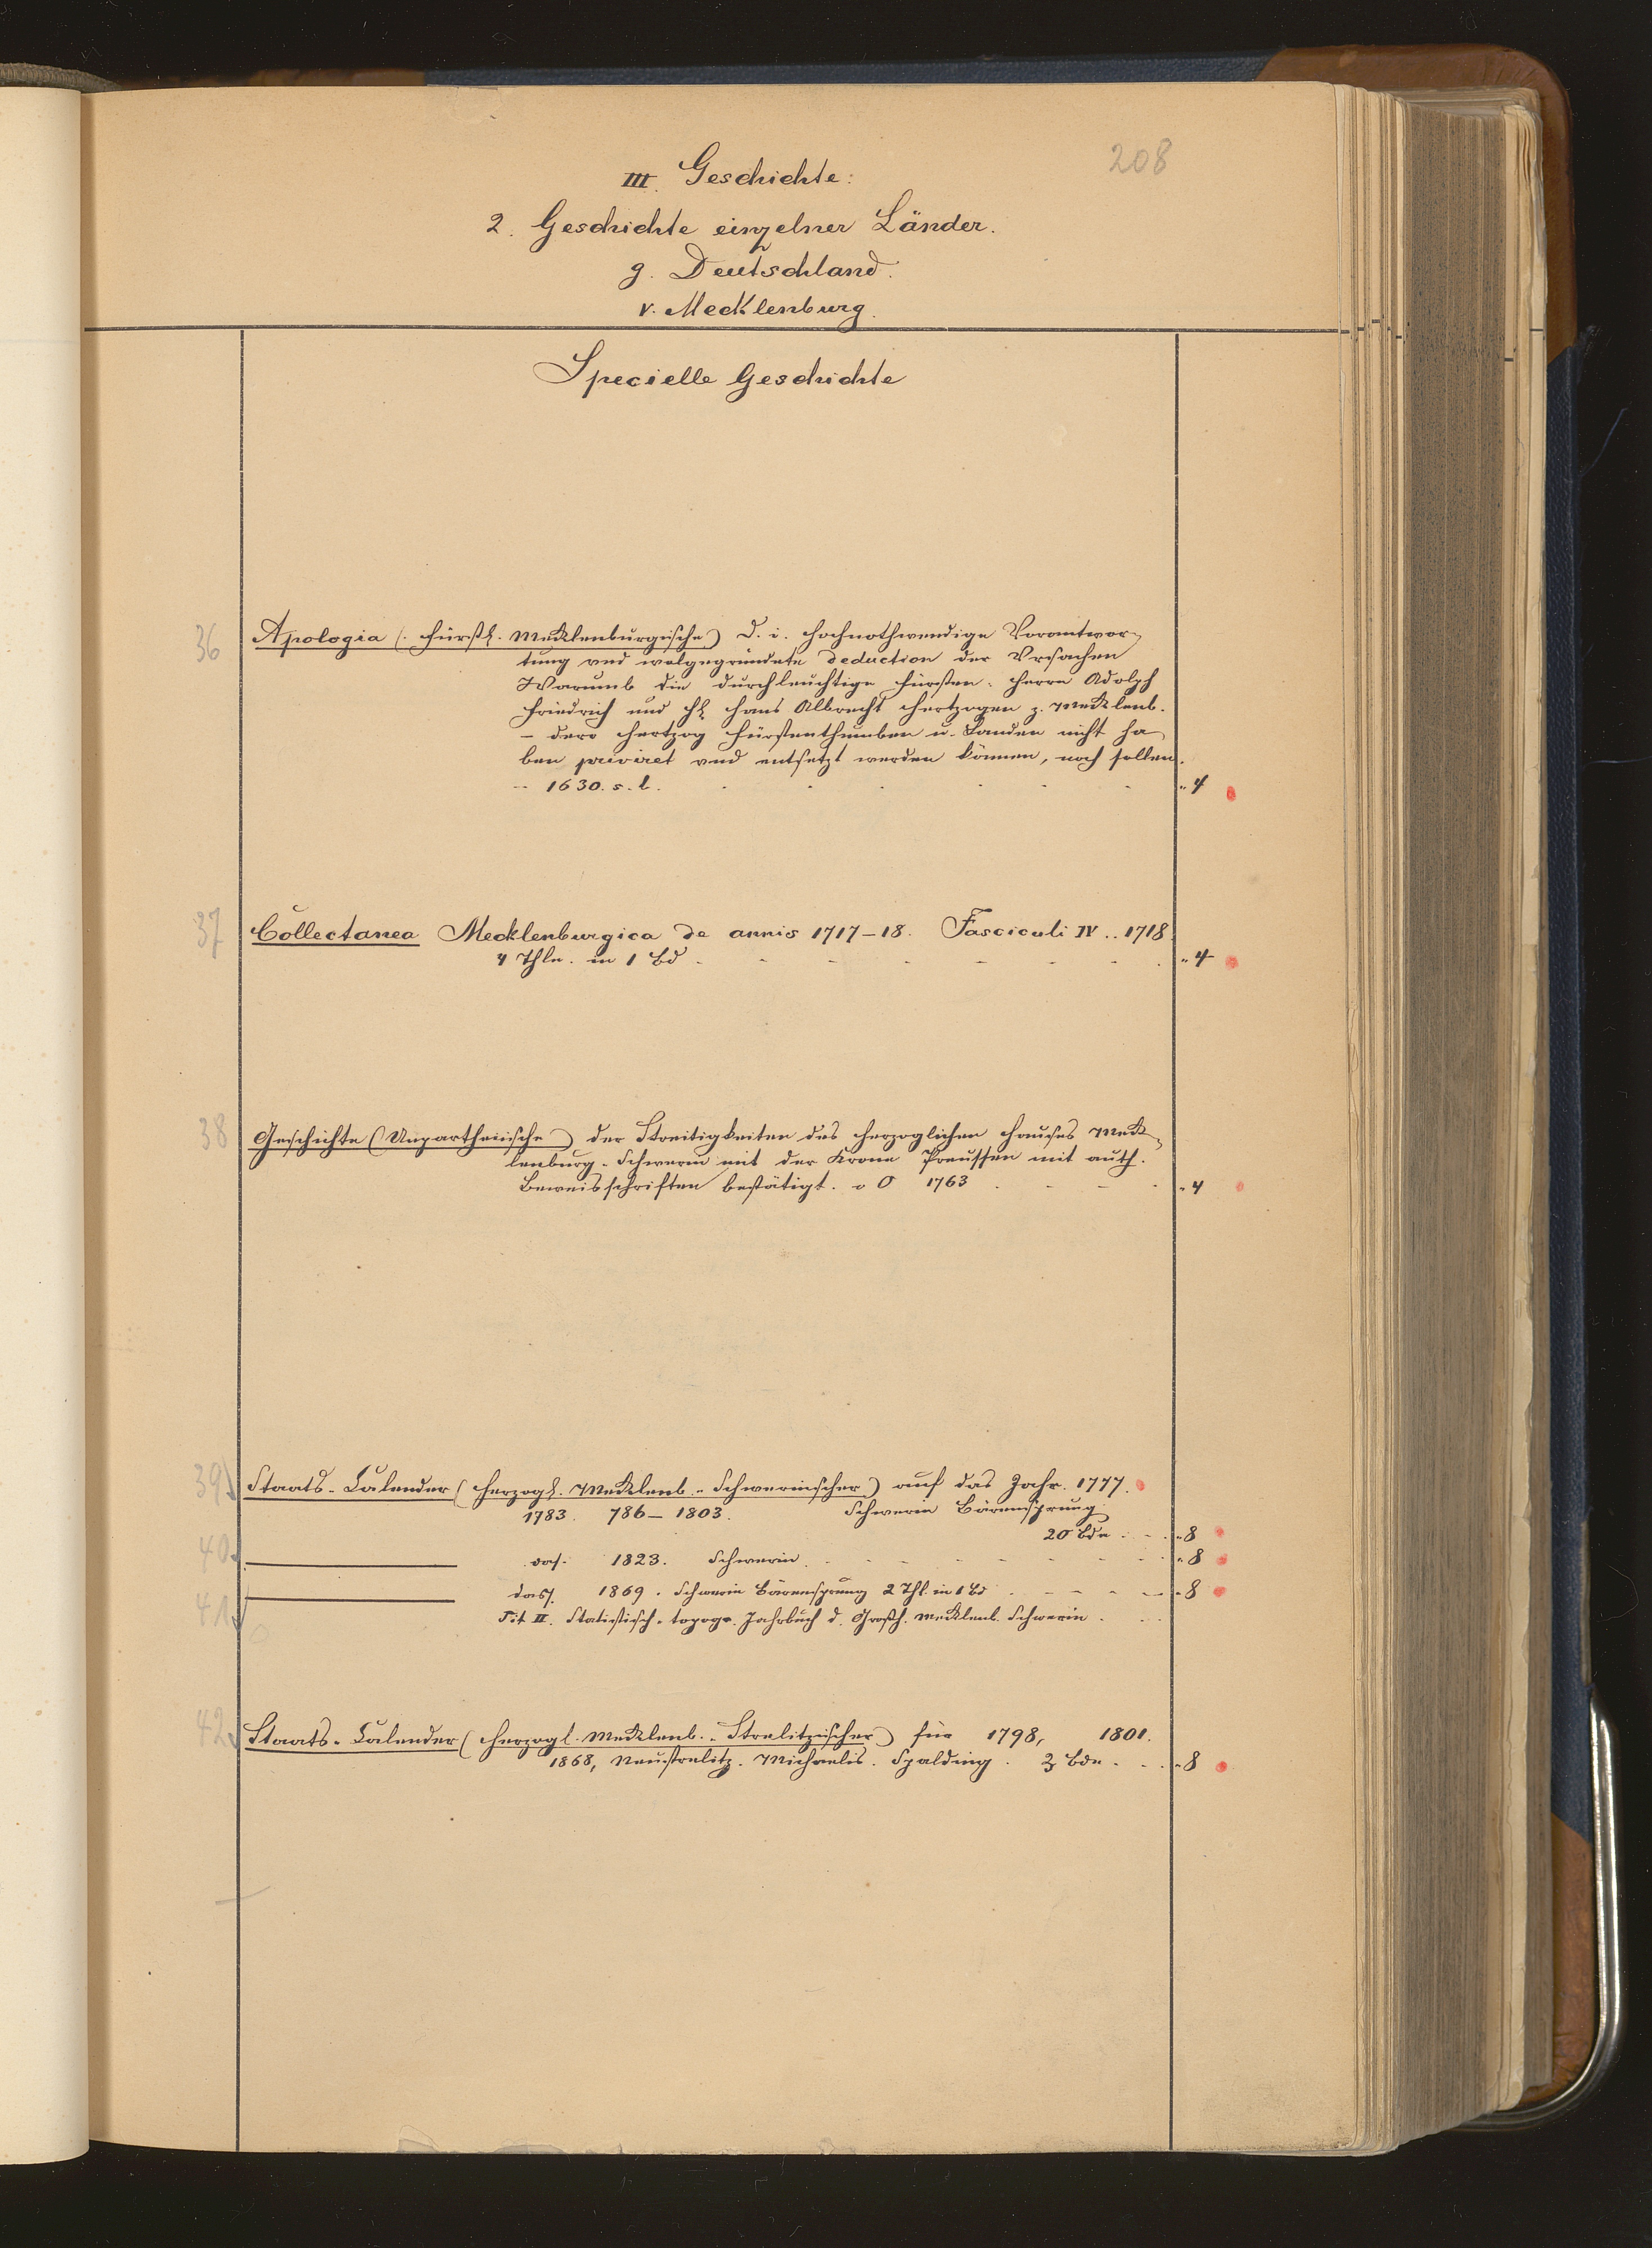 208
III. Geschichte:
2. Geschichte einzelner Länder.
g. Deutschland.
v. Mecklenburg.
Specielle Geschichte
36 Apologia (: Fürstl. Mecklenburgische) d. i. hochnothwendige Verantwor-
tung vnd wolgegründete deduction der Vrsachen
Warumb die durchleuchtige Fürsten: Herrn Adolph
Friedrich und H. Hans Albrecht Hertzogen z. Mecklenb.
- dero Hertzog Fürstenthumben u. Landen nicht ha-
ben priviret vnd entsetzt werden können, noch sollen.
- 1630. s. l. " 4
37 Collectanea Mecklenburgica de annis 1717-18. Fasciculi IV .. 1718.
4 Thle. in 1 Bd " 4
38 Geschichte (Unpartheiische) der Streitigkeiten des herzoglichen Hauses Meck-
lenburg-Schwerin mit der Krone Preussen mit auth.
Beweisschriften bestätigt. o O 1763 " 4
39 Staats-Calender (Herzogl. Mecklenb.-Schwerinischer) auf das Jahr. 1777.
1783. 786-1803. Schwerin Bärensprung
20 Bde " 8
40 das. 1823. Schwerin. " 8
41 dass. 1869. Schwerin Bärensprung 2 Thl. in 1 Bd " 8
Tit II. Statistisch-topogr. Jahrbuch d. Grossh. Mecklenb. Schwerin.
42 Staats-Calender (Herzogl. Mecklenb.-Strelitzischer) für 1798, 1801.
1868, Neustrelitz. Michaelis. Spalding. 3 Bde " 8